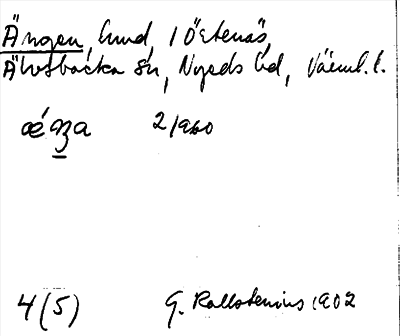 Ängen, lund, i Östenäs,
Älvsbacka sn, Nyeds hd, Värml. l.
2/1960
4(5) G. Kallstenius 1902